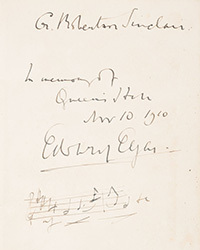 G. Robertson Sinclair.
In memory of
Queen's Hall
Nov 10 1910
Edward Elgar.